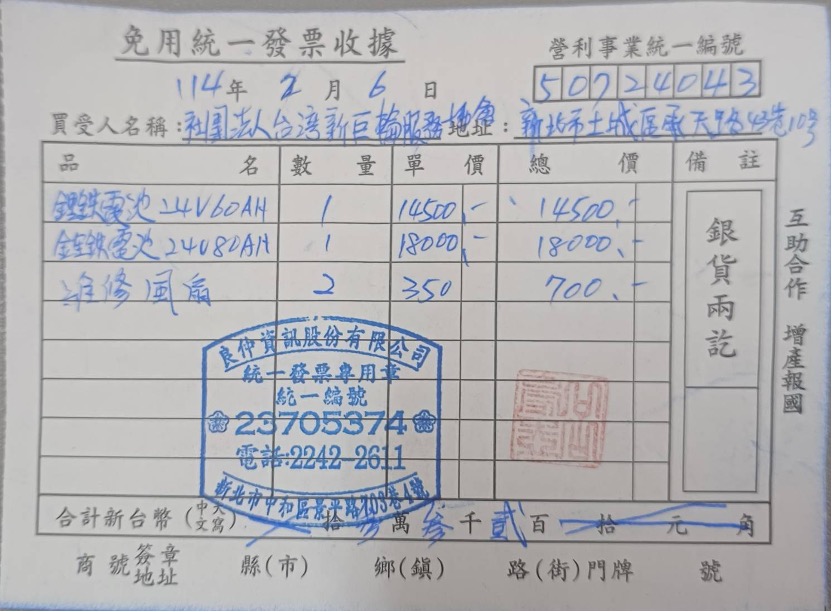 免用統一發票收據
營利事業統一編號
50724043
114年 2 月 6 日
買受人名稱：社團法人台湾新巨輪服務協會 地址：新北市土城區承天路43巷10号
品 名 數 量 單 價 總 價 備 註
鋰鉄電池24V60AH 1 14500.- 14500.-
鋰鉄電池24V80AH 1 18000.- 18000.-
維修風扇 2 350 700.-
銀貨兩訖
互助合作 增產報國
良仲資訊股份有限公司
統一發票專用章
統一編號
23705374
電話:2242-2611
新北市中和區景平路703巷4號
合計新台幣(中文大寫) 拾 叁萬叁千貳百 拾 元 角
商號簽章地址 縣(市) 鄉(鎮) 路(街)門牌 號